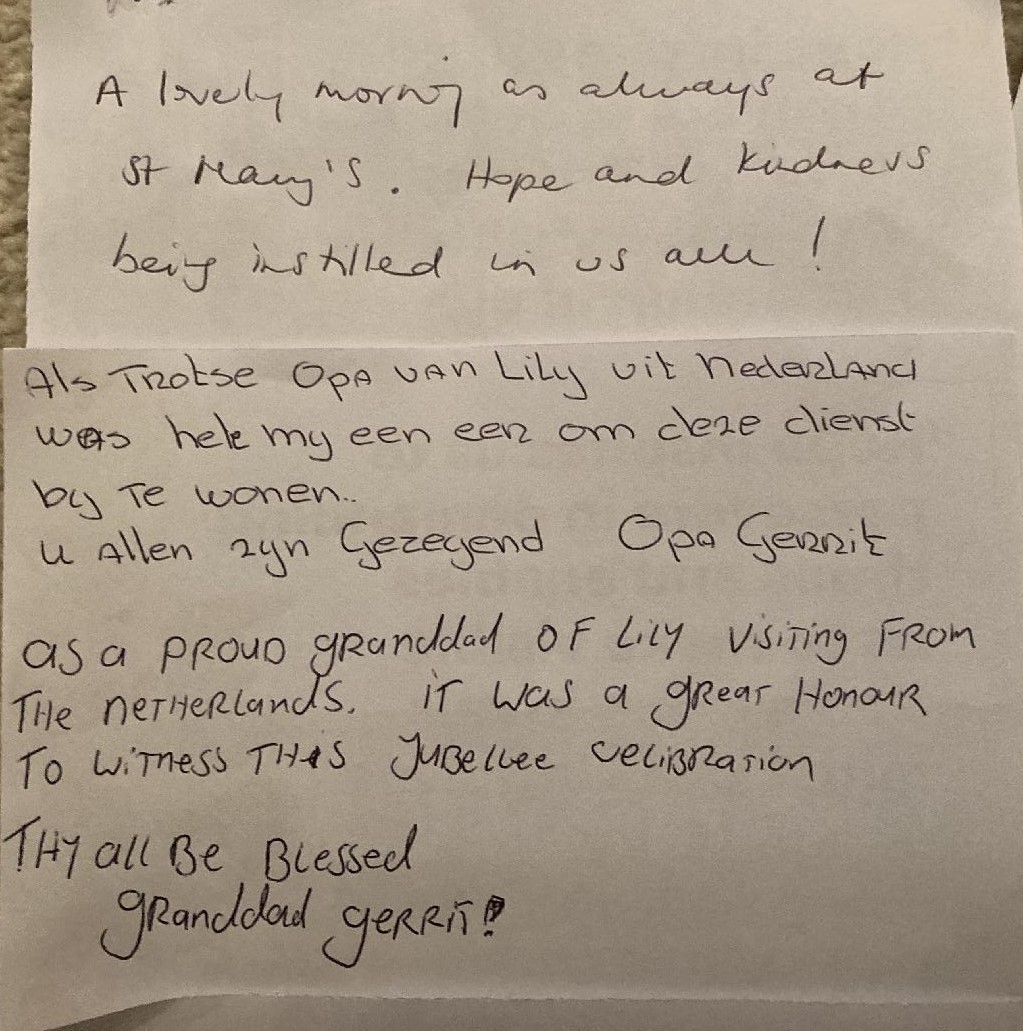 A lovely morning as always at
St Mary's. Hope and kindness
being instilled in us all!
Als Trotse Opa van Lily uit Nederland
was het my een eer om deze dienst
by Te wonen..
u Allen zyn Gezegend Opa Gerrit
as a proud granddad of Lily visiting from
The Netherlands. it was a great Honour
To witness This Jubellee celibration
Thy all Be Blessed
Granddad Gerrit!